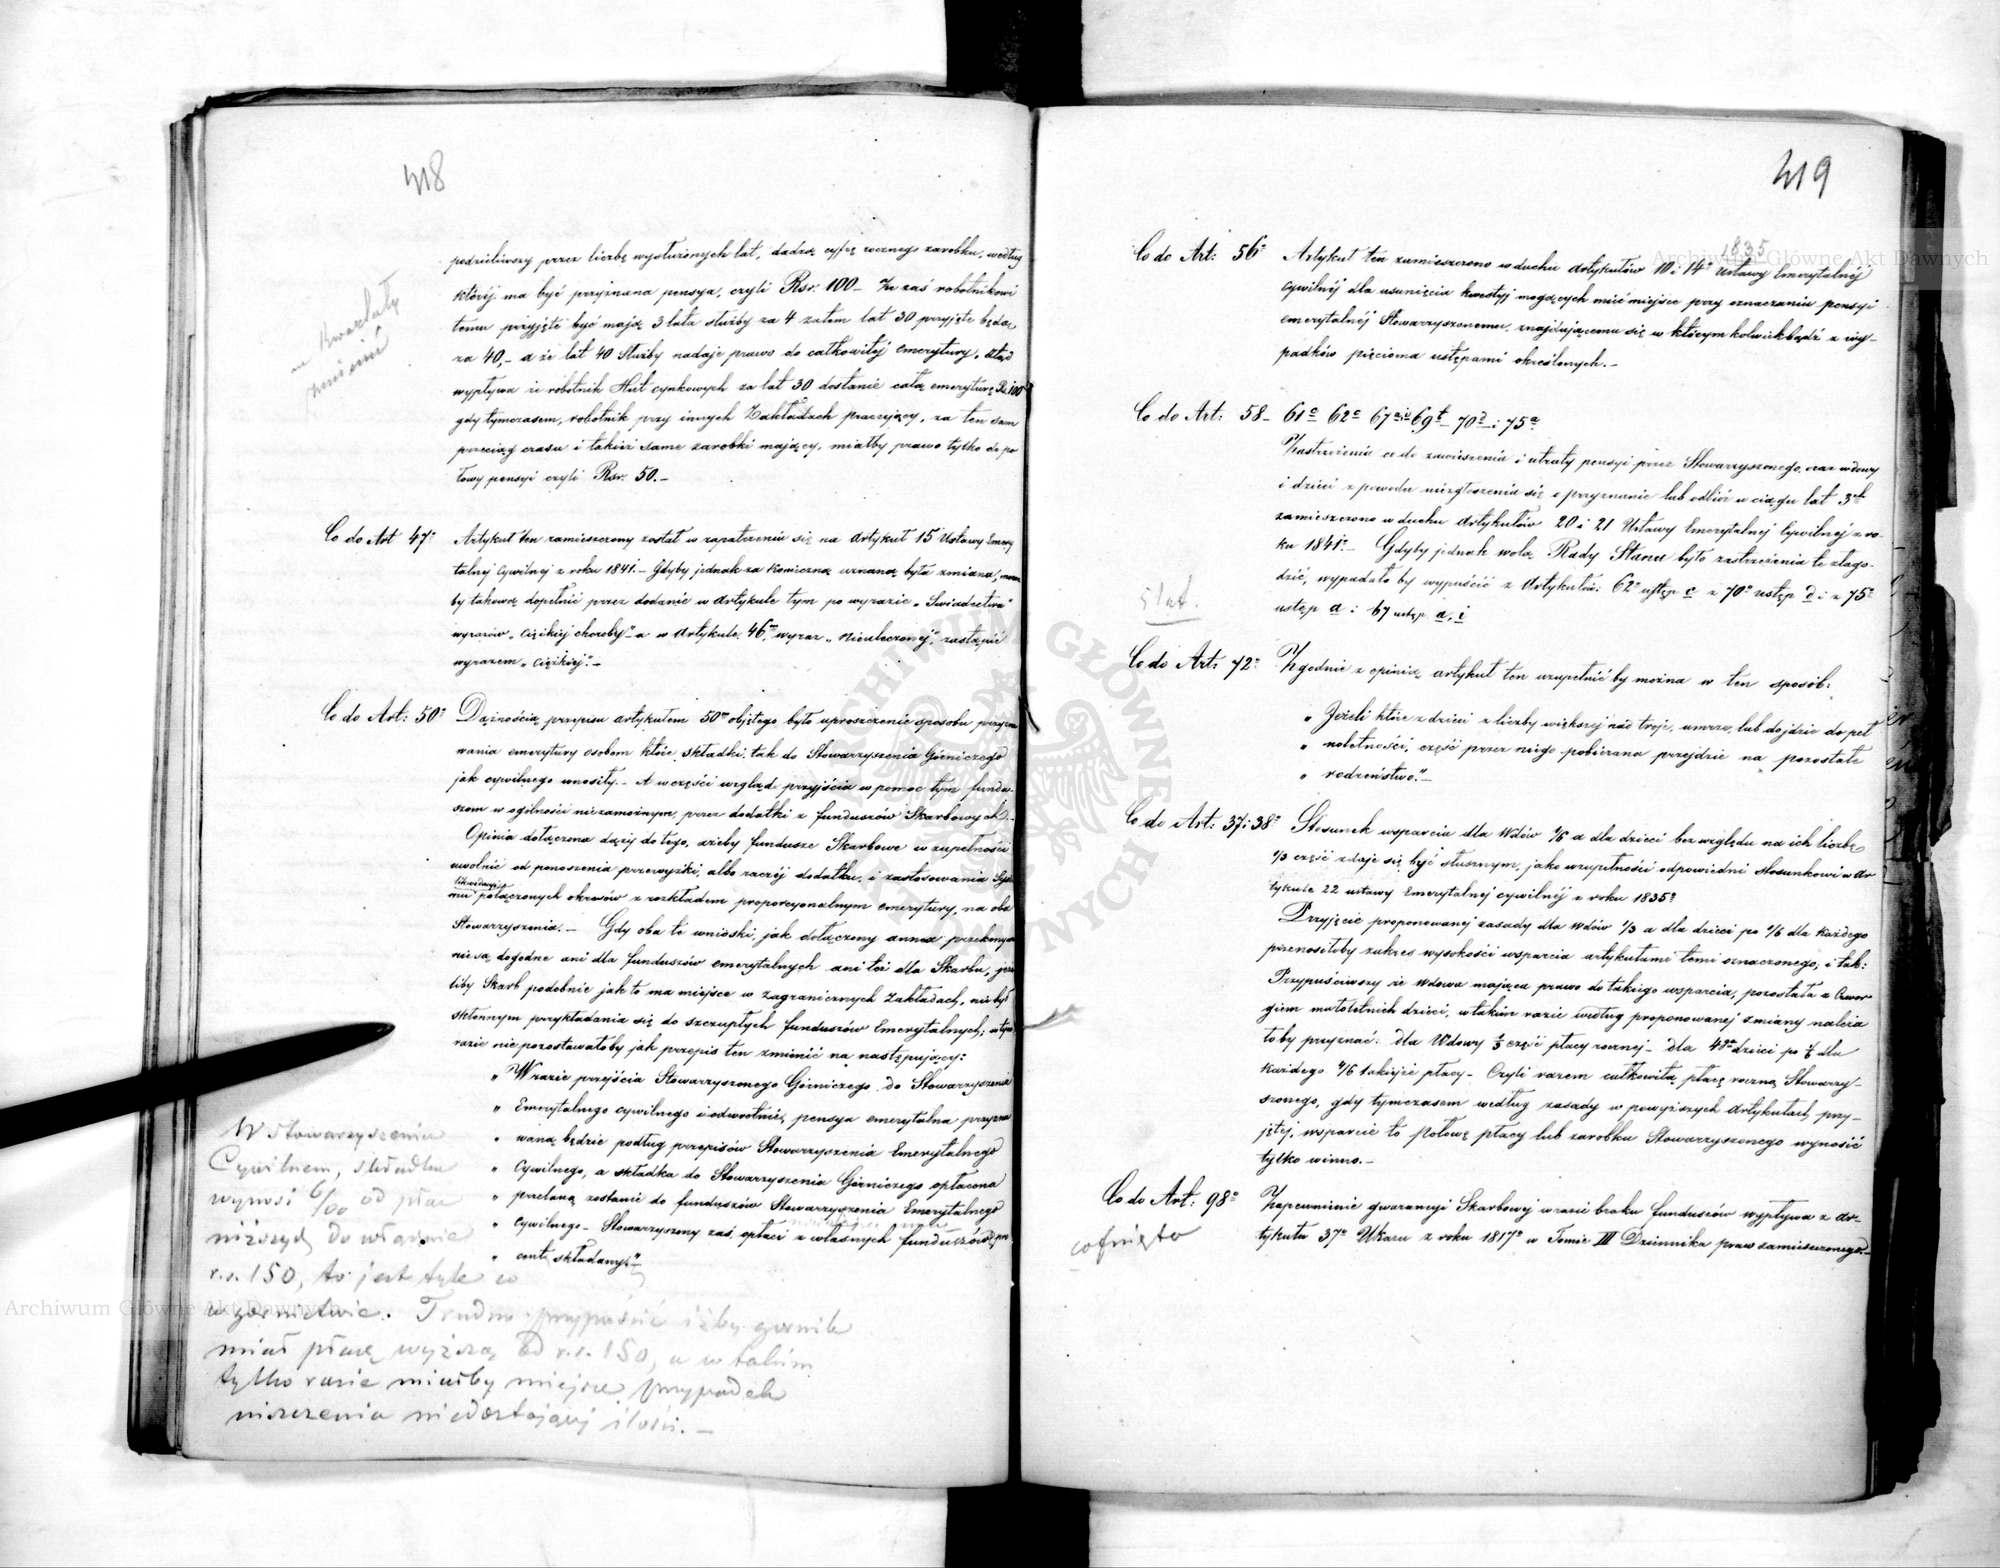 418
podzieliwszy przez liczbę wysłużonych lat, dadzą cyfrę rocznego zarobku, według
której ma być przyznana pensya, czyli Rsr. 100 – Że zaś robotnikowi
temu przyjęte być mają 3 lata służby za 4 zatem lat 30 przyjęte będą
za 40, – a że lat 40 Służby nadaje prawo do całkowitéj emerytury, ztąd
wypływa iż robotnik Hut cynkowych za lat 30 dostanie całą emeryturę Rs. 100
gdy tymczasem, robotnik przy innych Zakładach pracujący, za ten sam
przeciąg czasu i takież same zarobki mający, miałby prawo tylko do po
łowy pensyi czyli Rsr. 50. –
Kwartały
Co do Art 47º Artykuł ten zamieszczony został w zapatrzeniu się na Artykuł 15 Ustawy Emery
talnej Cywilnej z roku 1841. – Gdyby jednak za konieczną uznaną była zmiana,
by takową dopełnić przez dodanie w Artykule tym po wyrazie „Świadectwa"
wyrazów „ciężkiej choroby" – a w Artykule 46 wyraz „nieuleczonej", zastąpić
wyrazem „ciężkiej". –
Co do Art: 50º Dążnością przepisu artykułem 50m objętego było uproszczenie sposobu przyzna
wania emerytury osobom które składki, tak do Stowarzyszenia Górniczego
jak cywilnego wnosiły. – A w części wzgląd przyjścia w pomoc tym fundu-
szom w ogólności niezamożnym, przez dodatki z funduszów Skarbowych. –
Opinia dołączona dąży do tego, ażeby fundusze Skarbowe w zupełności
uwolnić od ponoszenia przewyżki, albo raczéj dodatku, i zastosowania Syste
likwidacyi
mu połączonych okresów z rozkładem proporcyonalnym emerytury, na oba
Stowarzyszenia. – Gdy oba te wnioski, jak dołączony annex przekonywa
nie są dogodne ani dla funduszów emerytalnych ani też dla Skarbu, jeże
liby Skarb podobnie jak to ma miejsce w zagranicznych Zakładach, nie był
skłonnym przykładania się do szczupłych funduszów Emerytalnych; w tym
razie nie pozostawałoby jak przepis ten zmienić na następujący:
„ W razie przejścia Stowarzyszonego Górniczego do Stowarzyszenia
„ Emerytalnego cywilnego i odwrotnie, pensya emerytalna przyzna
„ waną będzie podług przepisów Stowarzyszenia Emerytalnego
„ Cywilnego, a składka do Stowarzyszenia Górniczego opłacona
„ przelaną zostanie do funduszów Stowarzyszenia Emerytalnego
„ Cywilnego – Stowarzyszony zaś opłaci z własnych funduszów pro
„ cent składany." –
W Stowarzyszeniu
Cywilnem, składka
wynosi 6/00 od płac
niższych do włącznie
r.s. 150, to jest tyle co
w górnictwie. Trudno przypuścić iżby górnik
miał płacę wyższą od r.s. 150, a w takim
tylko razie miałby miejsce przypadek
niszczenia niedostającej ilości. –
419
1835
Co do Art: 56º Artykuł ten zamieszczono w duchu Artykułów 10 i 14º Ustawy Emerytalnéj
Cywilnéj dla usunięcia kwestyj mogących mieć miejsce przy oznaczaniu pensyi
emerytalnéj Stowarzyszonemu, znajdującemu się w którym kolwiekbądź z wy-
padków pięcioma ustępami określonych. –
Co do Art: 58 – 61º 62º 67 69 70 i 75º
Zastrzeżenia co do zawieszenia i utraty pensyi przez Stowarzyszonego, oraz wdowy
i dzieci z powodu niezgłoszenia się o przyznanie lub odbiór w ciągu lat 3ch
zamieszczono w duchu Artykułów 20 i 21 Ustawy Emerytalnej Cywilnej z ro-
ku 1841º – Gdyby jednak wolą Rady Stanu było zastrzeżenia te złago-
dzić, wypadało by wypuścić z Artykułów: 62º ustęp c z 70º ustęp d i z 75º
ustęp a i 67 ustęp a, i
5 lat.
Co do Art: 72º Zgodnie z opinią, artykuł ten uzupełnić by można w ten sposób:
„ Jeżeli które z dzieci z liczby większej nad troje, umrze, lub dojdzie do peł
„ noletności, część przez niego pobierana przejdzie na pozostałe
„ rodzeństwo." –
Co do Art: 37 i 38º Stosunek wsparcia dla Wdów 1/6 a dla dzieci bez względu na ich liczbę
1/3 część zdaje się być słusznym, jako w zupełności odpowiedni stosunkowi w Ar
tykule 22 ustawy Emerytalnej cywilnéj z roku 1835º
Przyjęcie proponowanej zasady dla Wdów 1/3 a dla dzieci po 1/6 dla każdego
przenosiłoby zakres wysokości wsparcia artykułami temi oznaczonego; i tak:
Przypuściwszy że Wdowa mająca prawo do takiego wsparcia, pozostała z Czwor
giem małoletnich dzieci, w takim razie według proponowanej zmiany należa
łoby przyznać: dla Wdowy 1/3 część płacy rocznej – dla 4ga dzieci po 1/6 dla
każdego 4/6 takiejże płacy – Czyli razem całkowitą płacę roczną Stowarzy-
szonego, gdy tymczasem według zasady w powyższych Artykułach przy-
jętej, wsparcie to połowę płacy lub zarobku Stowarzyszonego wynosić
tylko winno. –
Co do Art: 98º Zapewnienie gwarancyi Skarbowéj w razie braku funduszów wypływa z Ar-
tykułu 37º Ukazu z roku 1817º w Tomie III Dziennika praw zamieszczonego. –
cofnięto
Archiwum Główne Akt Dawnych
Archiwum Główne Akt Dawnych
ARCHIWUM GŁÓWNE AKT DAWNYCH